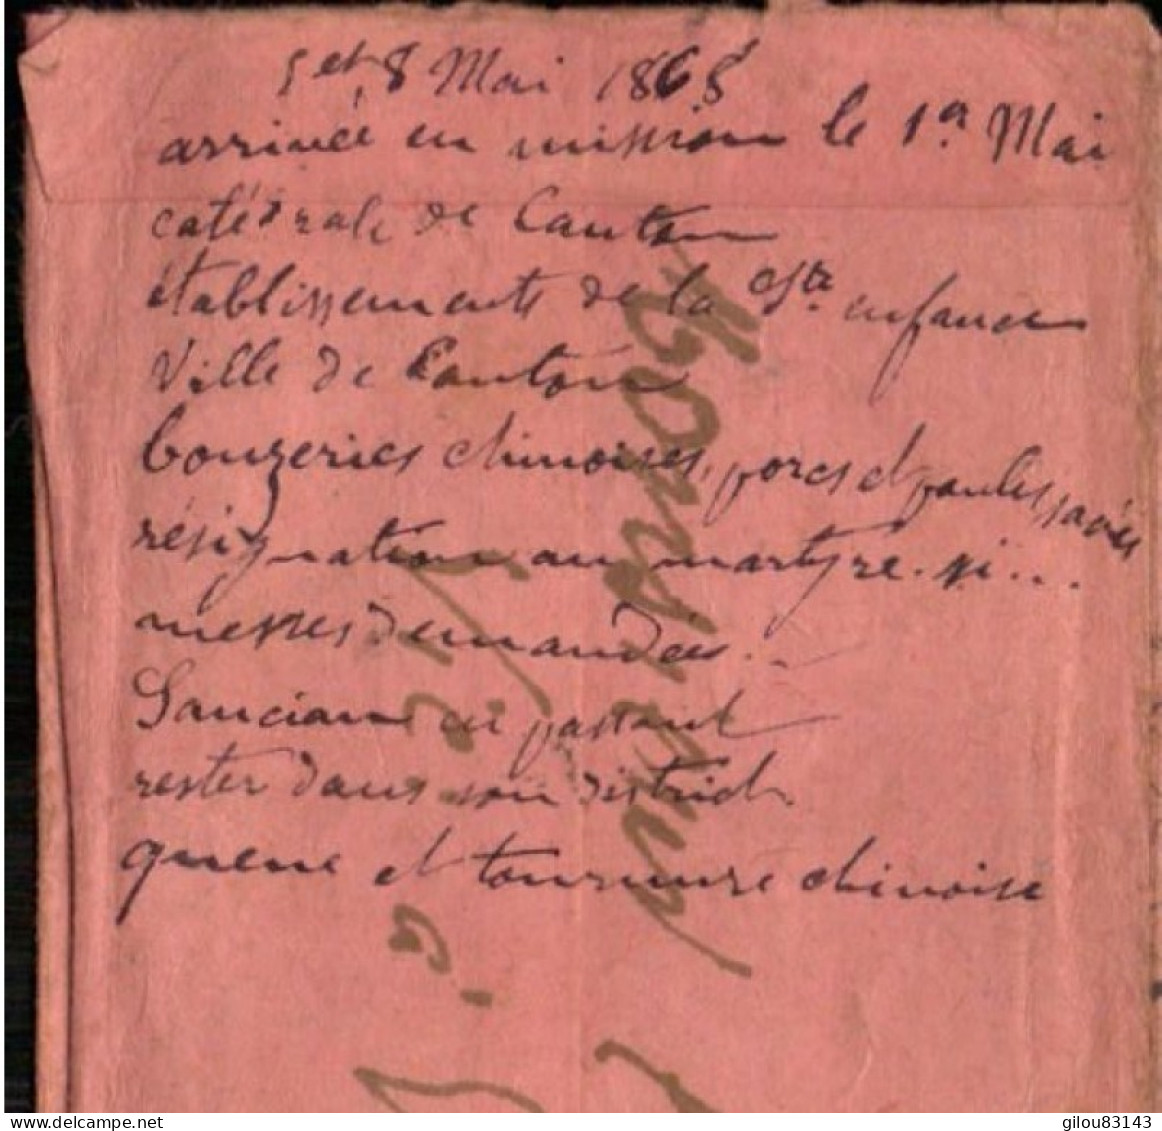 5 et 8 Mai 1868
arrivée en mission le 1er Mai
catédrale de Canton
établissements de la Ste enfance
Ville de Canton
bonzeries chinoises, porcs et poules sacrés
résignation au martyre. si...
messes demandées..
Sancian en passant
rester dans son district.
queue et tournure chinoise
gilou83143